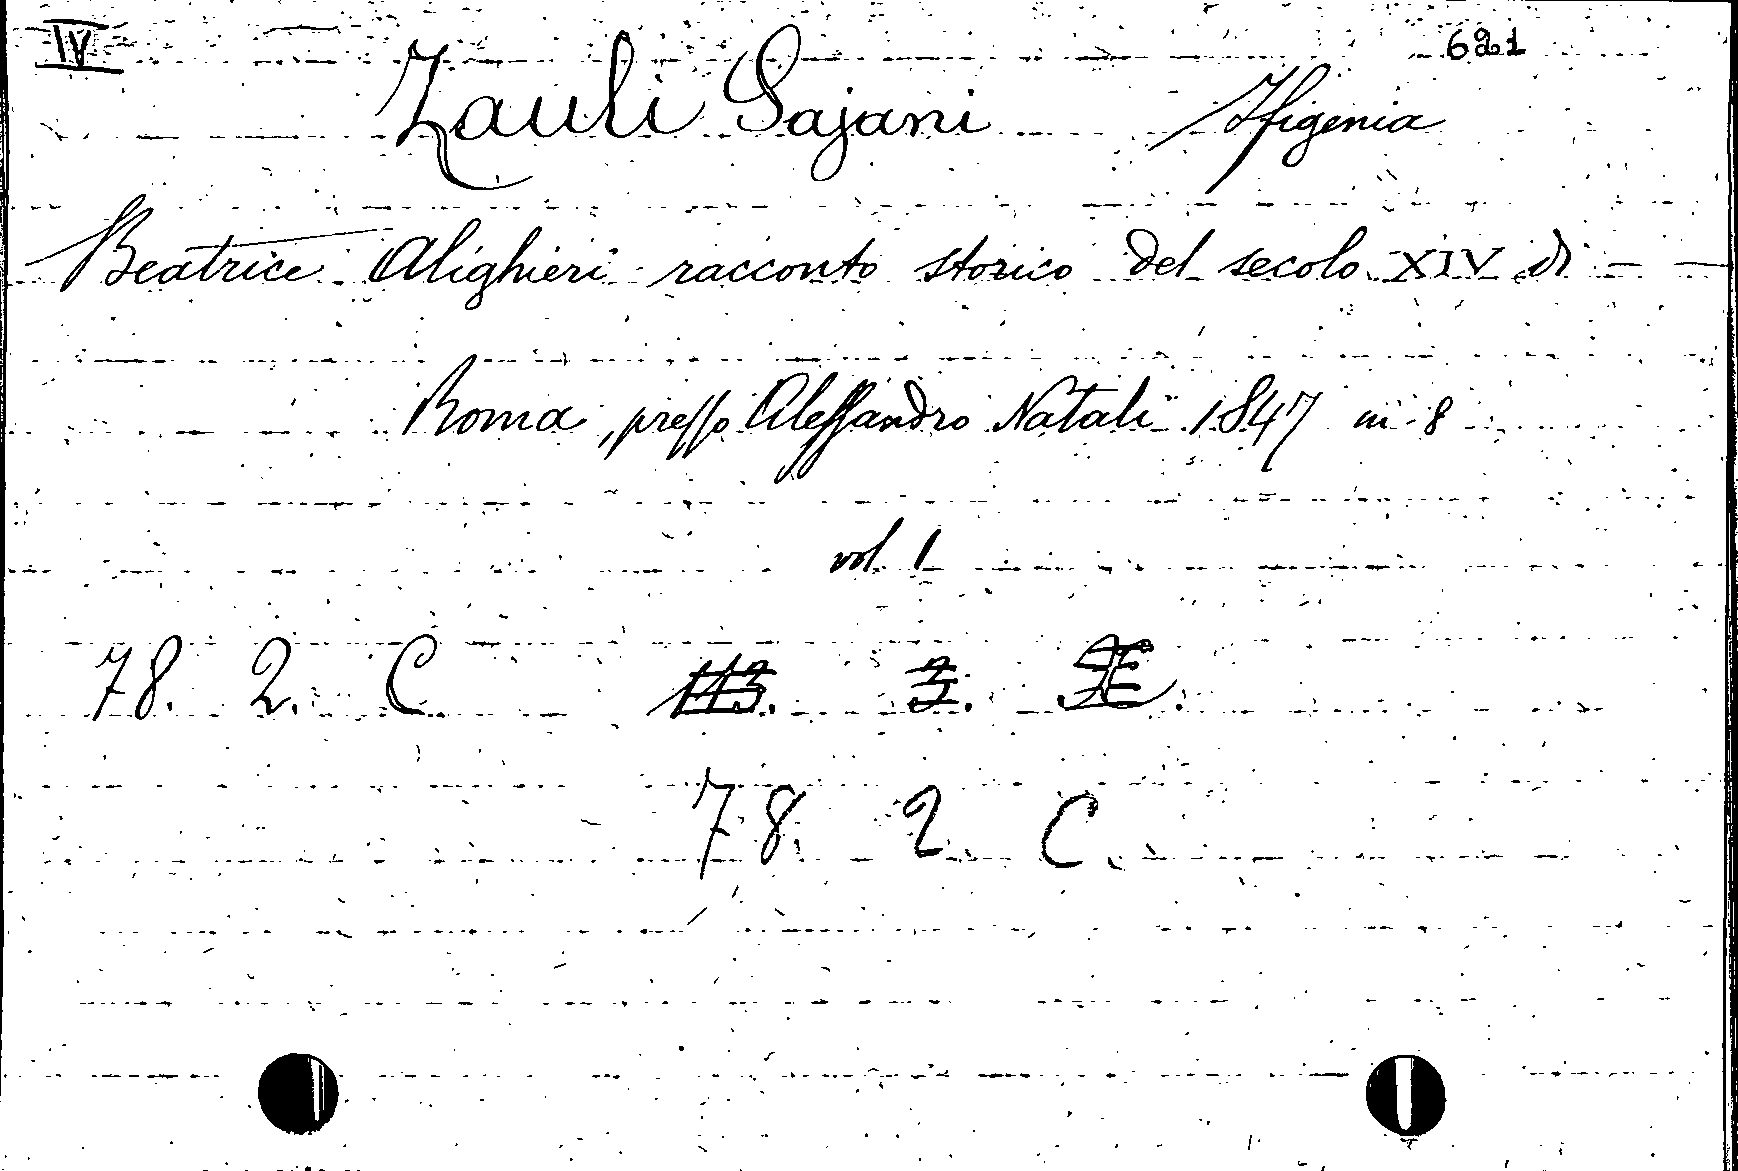 IV 621
Zauli Sajani Ifigenia
Beatrice Alighieri racconto storico del secolo XIV di — —
Roma, presso Alessandro Natali 1847 in 8
vol. 1
78. 2. C 113. 3.
78. 2. C.